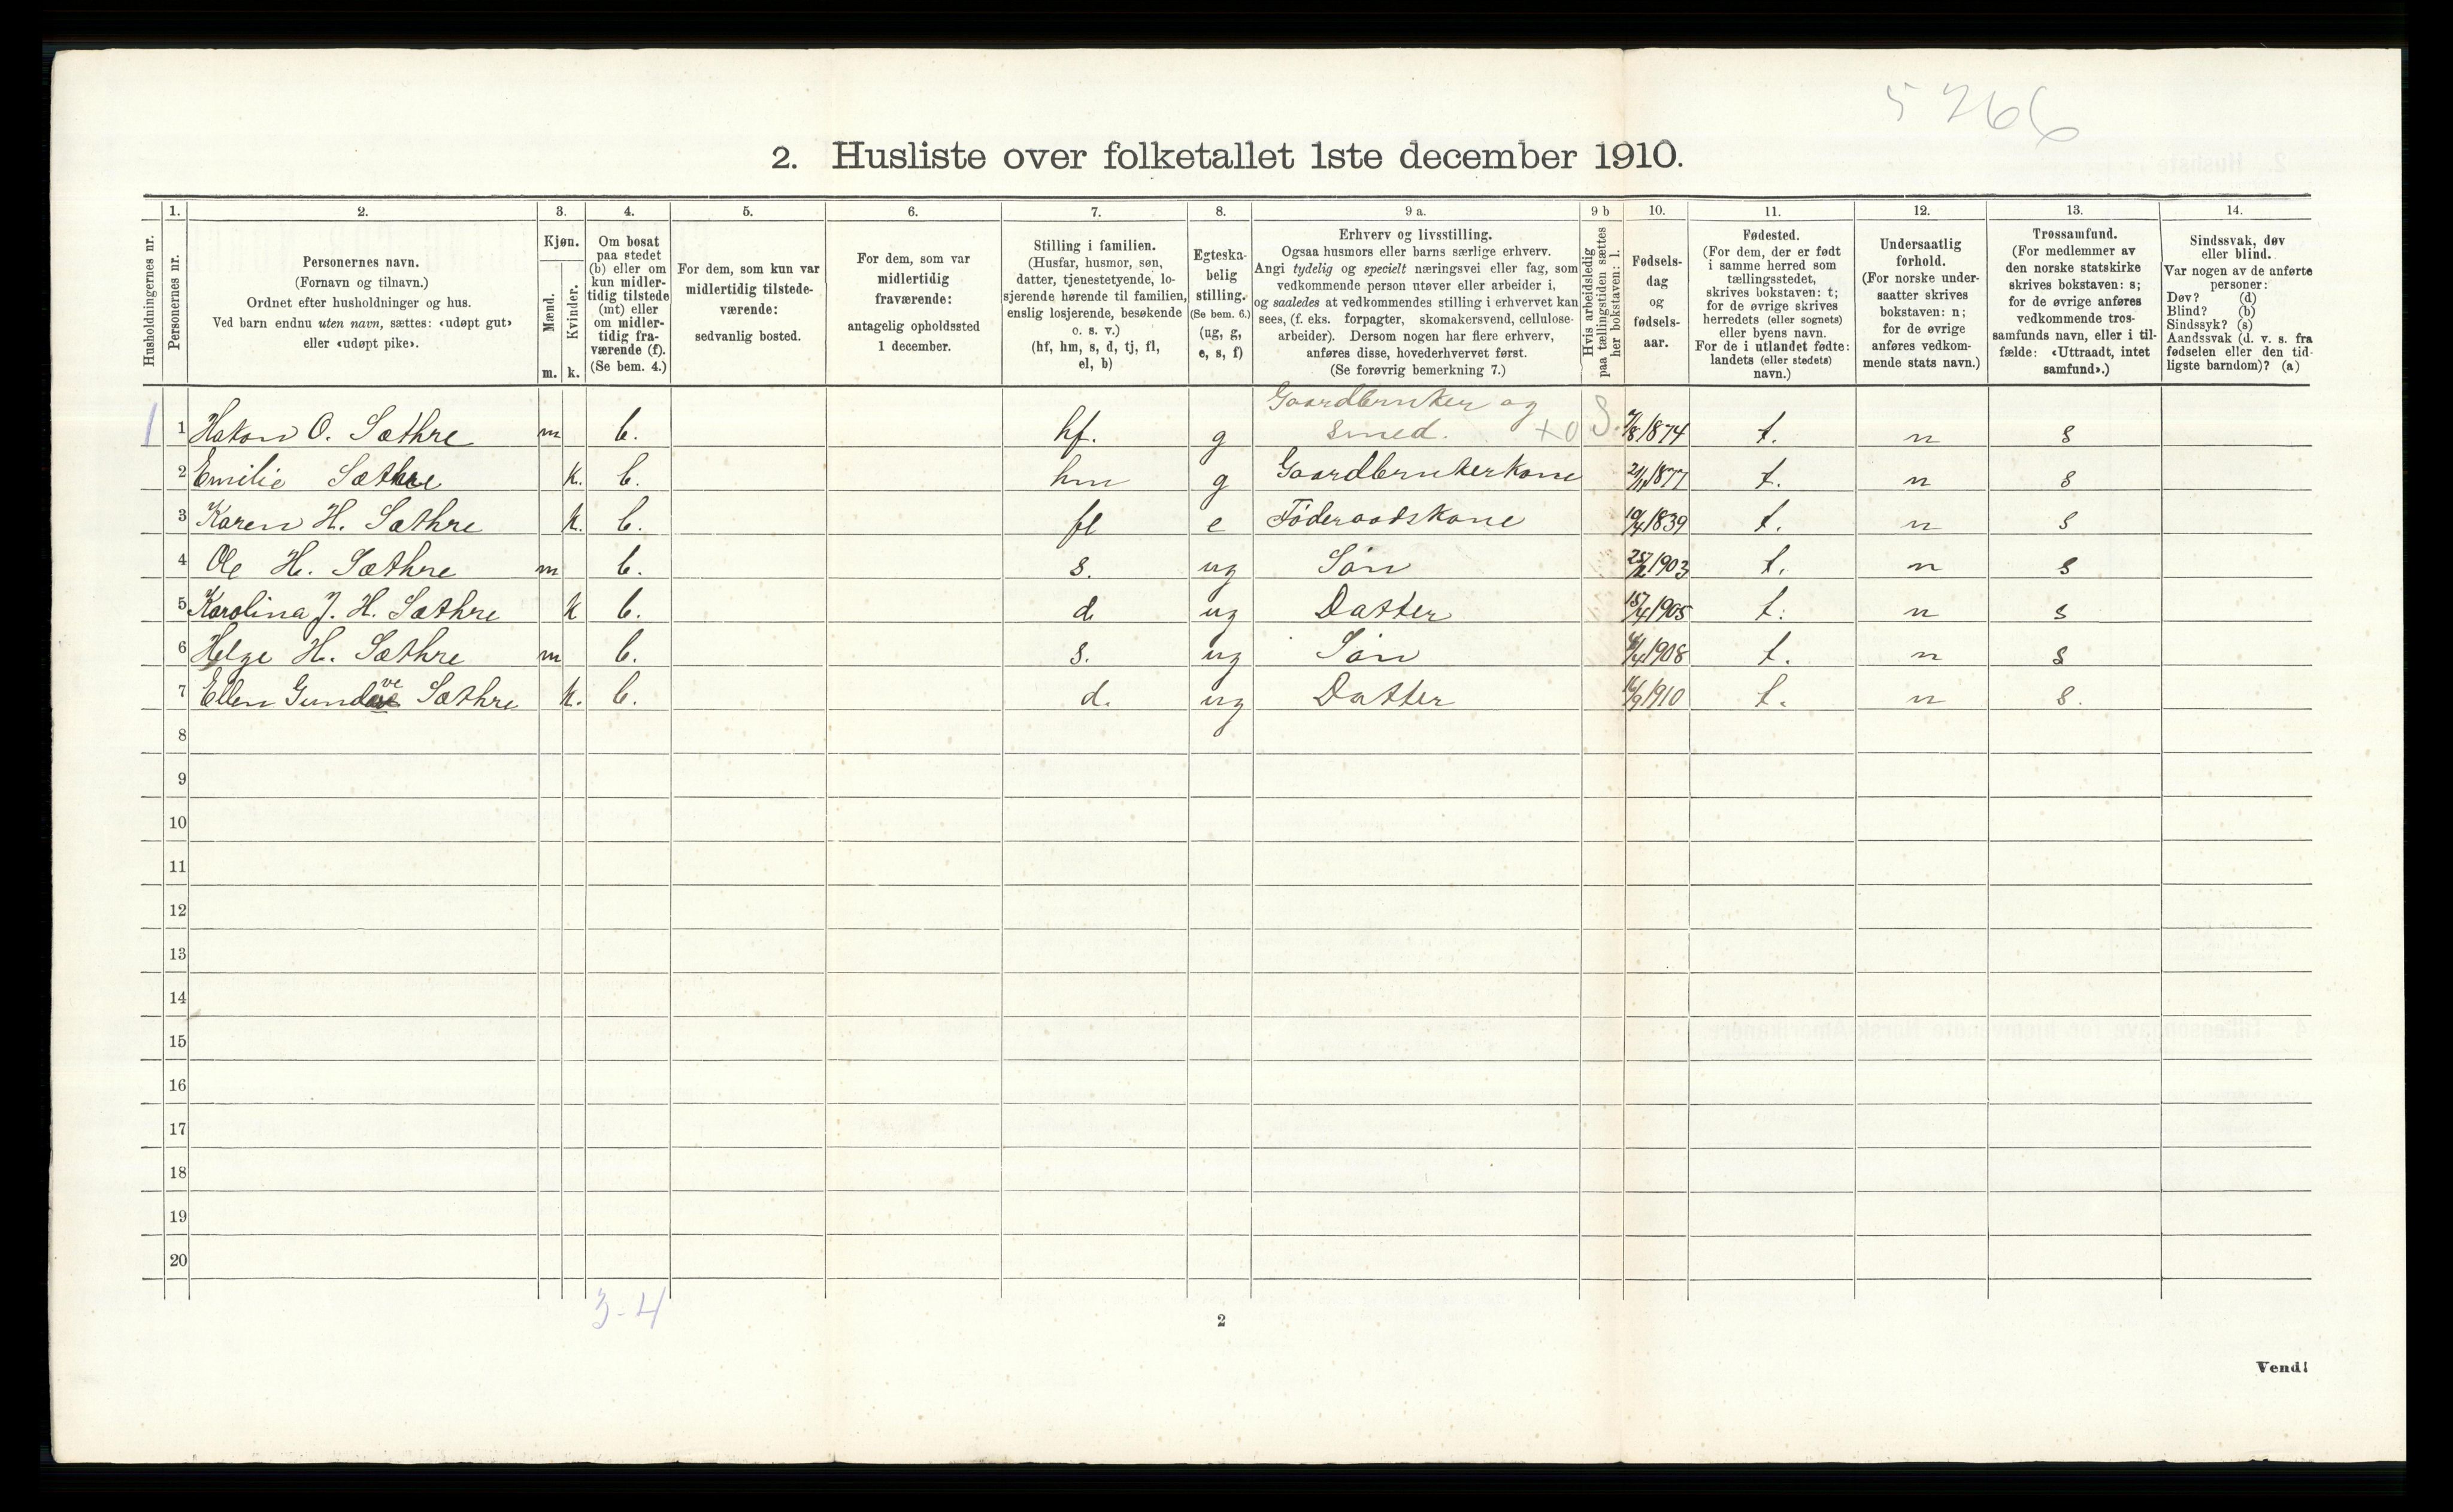 5266
2. Husliste over folketallet 1ste december 1910.
Husholdningernes nr.
1.
Personernes nr.
2.
Personernes navn.
(Fornavn og tilnavn.)
Ordnet efter husholdninger og hus.
Ved barn endnu uten navn, sættes: «udøpt gut»
eller «udøpt pike».
3.
Kjøn.
Mænd.
Kvinder.
m. k.
4.
Om bosat
paa stedet
(b) eller om
kun midler-
tidig tilstede
(mt) eller
om midler-
tidig fra-
værende (f).
(Se bem. 4.)
5.
For dem, som kun var
midlertidig tilstede-
værende:
sedvanlig bosted.
6.
For dem, som var
midlertidig
fraværende:
antagelig opholdssted
1 december.
7.
Stilling i familien.
(Husfar, husmor, søn,
datter, tjenestetyende, lo-
sjerende hørende til familien,
enslig losjerende, besøkende
o. s. v.)
(hf, hm, s, d, tj, fl,
el, b)
8.
Egteska-
belig
stilling.
(Se bem. 6.)
(ug, g,
e, s, f)
9 a.
Erhverv og livsstilling.
Ogsaa husmors eller barns særlige erhverv.
Angi tydelig og specielt næringsvei eller fag, som
vedkommende person utøver eller arbeider i,
og saaledes at vedkommendes stilling i erhvervet kan
sees, (f. eks. forpagter, skomakersvend, cellulose-
arbeider). Dersom nogen har flere erhverv,
anføres disse, hovederhvervet først.
(Se forøvrig bemerkning 7.)
9 b
Hvis arbeidsledig
paa tællingstiden sættes
her bokstaven: l.
10.
Fødsels-
dag
og
fødsels-
aar.
11.
Fødested.
(For dem, der er født
i samme herred som
tællingsstedet,
skrives bokstaven: t;
for de øvrige skrives
herredets (eller sognets)
eller byens navn.
For de i utlandet fødte:
landets (eller stedets)
navn.)
12.
Undersaatlig
forhold.
(For norske under-
saatter skrives
bokstaven: n;
for de øvrige
anføres vedkom-
mende stats navn.)
13.
Trossamfund.
(For medlemmer av
den norske statskirke
skrives bokstaven: s;
for de øvrige anføres
vedkommende tros-
samfunds navn, eller i til-
fælde: «Uttraadt, intet
samfund».)
14.
Sindssvak, døv
eller blind.
Var nogen av de anførte
personer:
Døv? (d)
Blind? (b)
Sindssyk? (s)
Aandssvak (d. v. s. fra
fødselen eller den tid-
ligste barndom)? (a)
Gaardbruker og
1 1 Hakon O. Sæthre m b. hf. g smed. +0 S. /8 1874 t. n s
2 Emilie Sæthre k. b. hm g Gaardbrukerkone 21/11 1877 t. n s
3 Karen H. Sæthre k. b. fl e Föderaadskone 19/4 1839 t. n s
4 Ole H. Sæthre m b. s. ug Sön 25/2 1903 t. n s
5 Karolina J. H. Sæthre k b. d. ug Datter 15/4 1905 t. n s
6 Helge H. Sæthre m b. s. ug Sön /4 1908 t. n s
7 Ellen Gundave Sæthre k. b. d. ug Datter 16/9 1910 t. n s.
8
9
10
11
12
13
14
15
16
17
18
19
20
3-4
2
Vend!